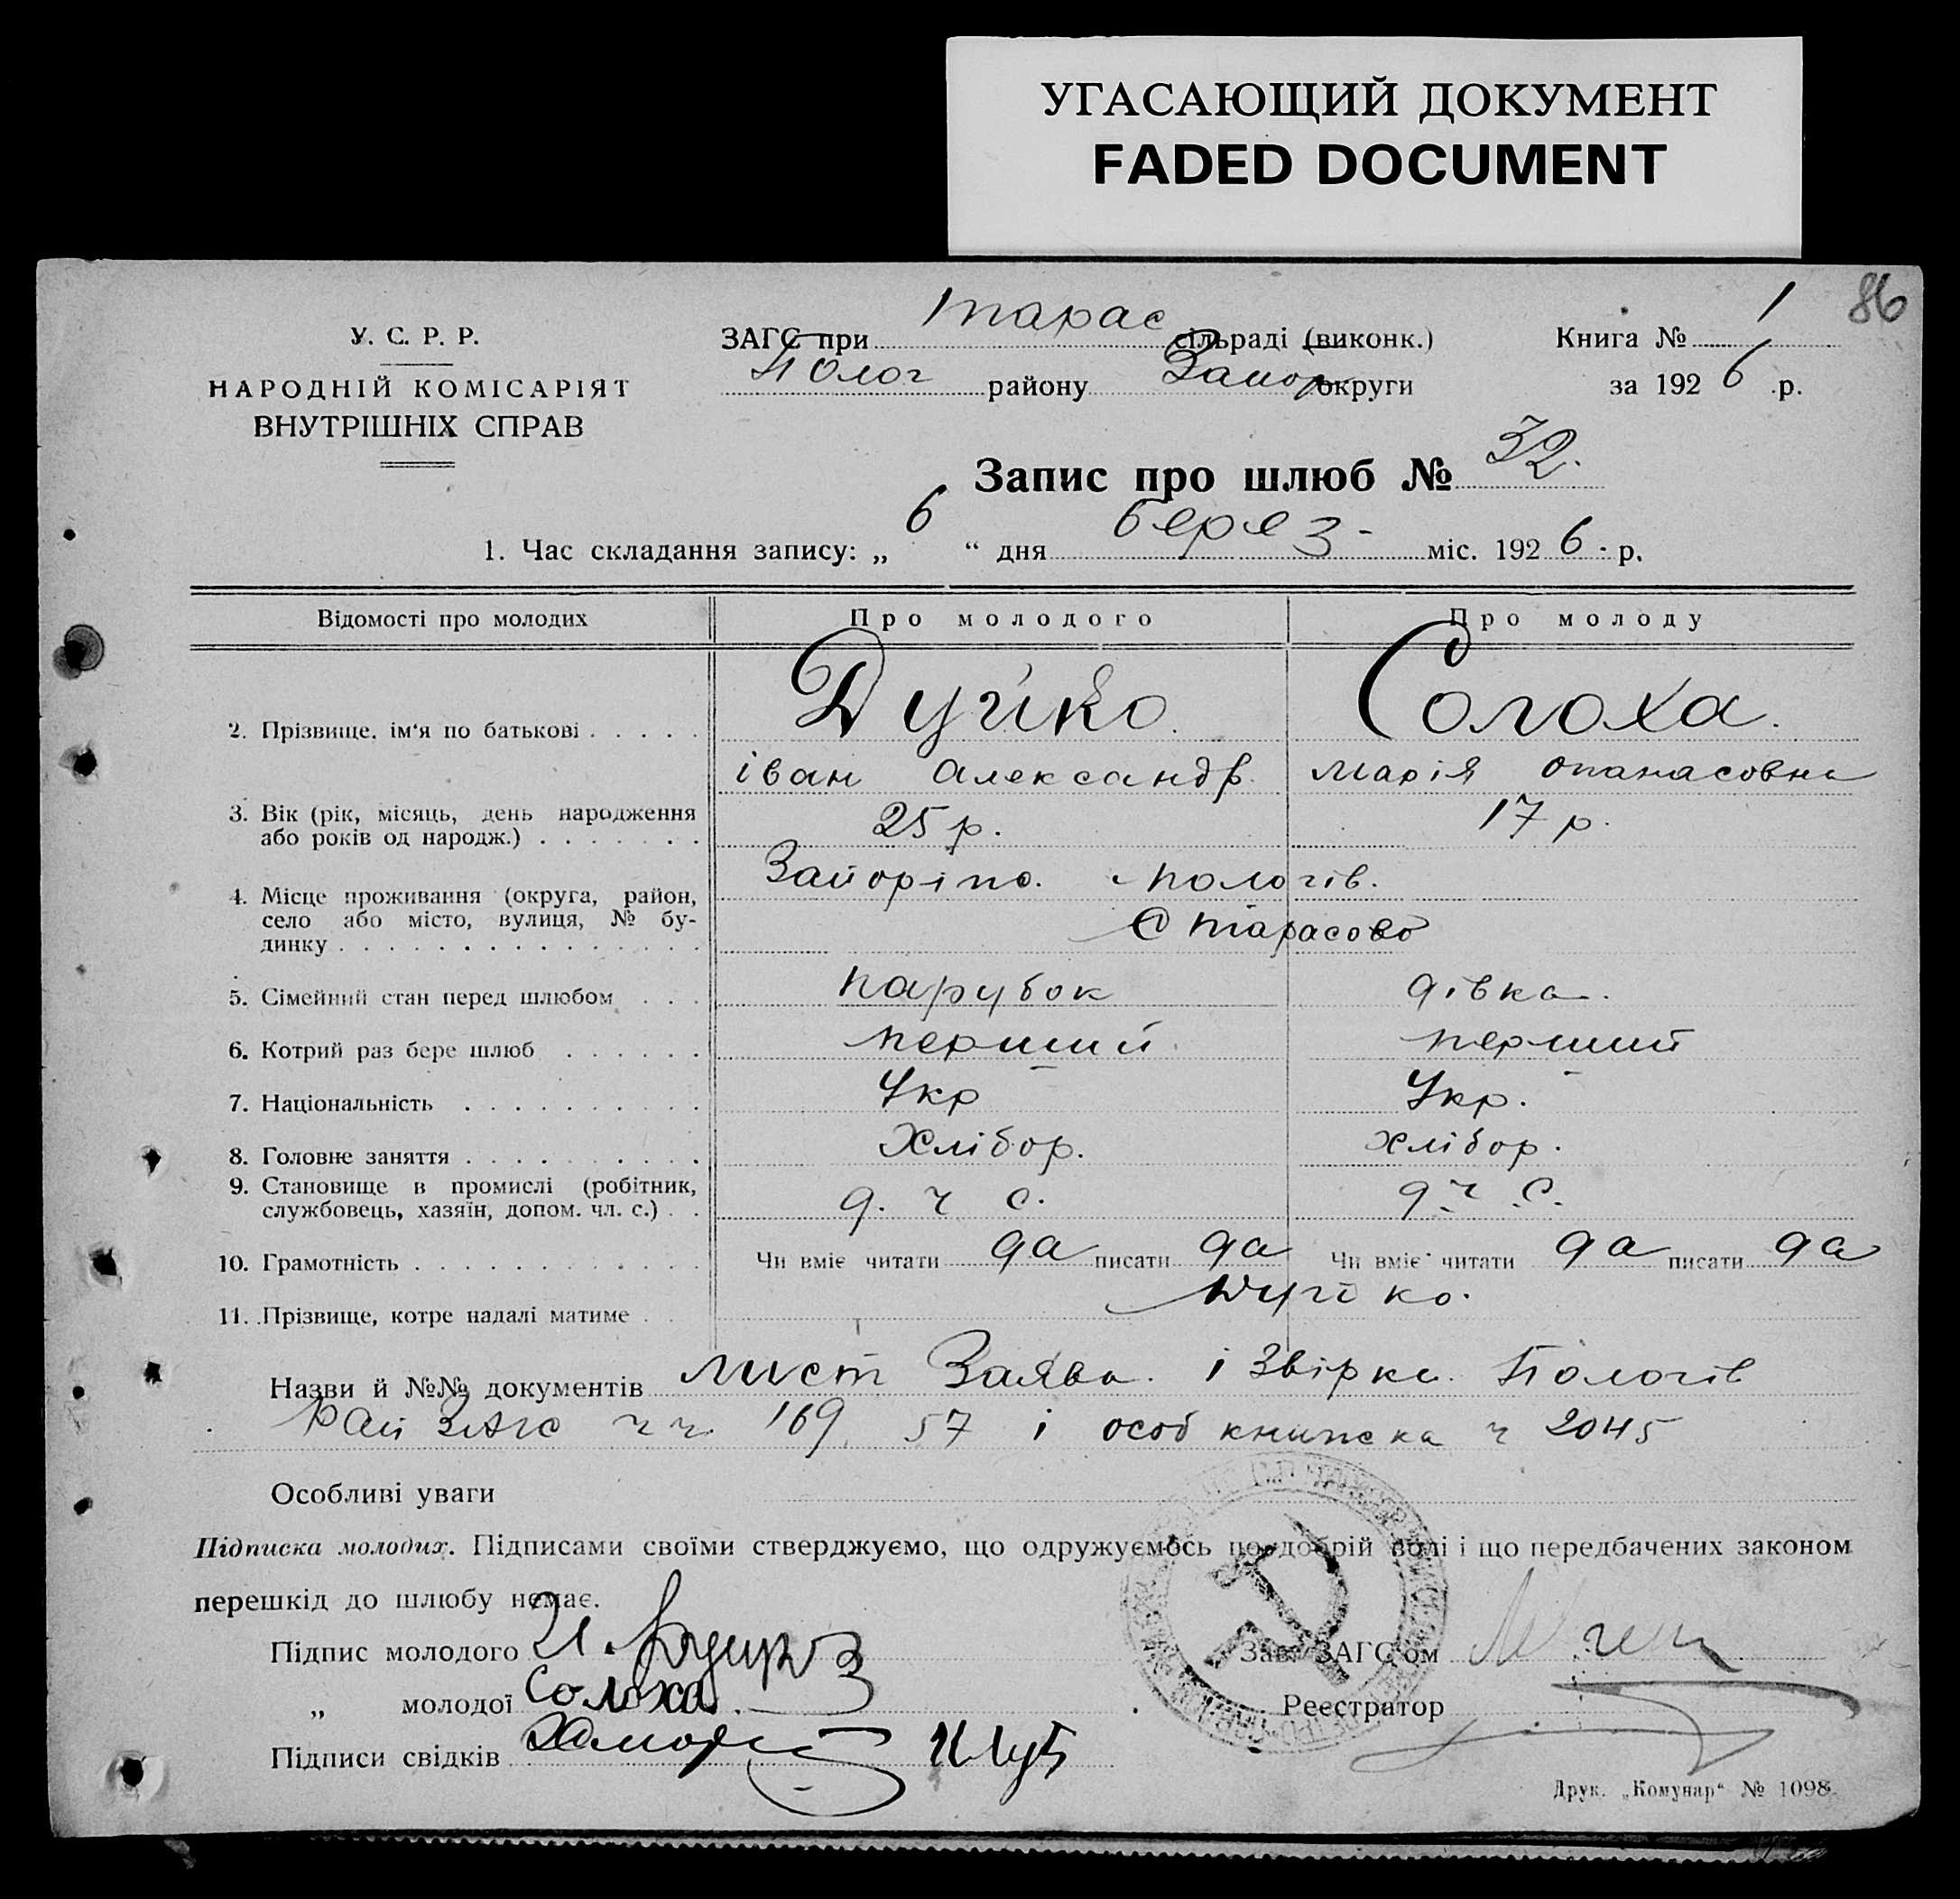 УГАСАЮЩИЙ ДОКУМЕНТ
FADED DOCUMENT
86
У. С. Р. Р.
НАРОДНІЙ КОМІСАРІЯТ
ВНУТРІШНІХ СПРАВ
ЗАГС при Тарас сільраді (виконк.)
Полог району Запор округи
Книга № 1
за 1926 р.
Запис про шлюб № 32.
1. Час складання запису: „ 6 “ дня берез- міс. 1926. р.
Відомості про молодих Про молодого Про молоду
2. Прізвище, ім‘я по батькові . . . . . Дуйко. Солоха.
іван Александр. Марія Опанасовна
3. Вік (рік, місяць, день народження
або років од народж.) . . . . . . . 25 р. 17 р.
4. Місце проживання (округа, район,
село або місто, вулиця, № бу-
динку . . . . . . . . . . . . . . .
Запоріпо. Пологів.
С Тарасово
5. Сімейний стан перед шлюбом . . . парубок дівка.
6. Котрий раз бере шлюб . . . . . . перший перший
7. Національність . . . . . . . . . . Укр Укр.
8. Головне заняття . . . . . . . . . . Хлібор. хлібор.
9. Становище в промислі (робітник,
службовець, хазяїн, допом. чл. с.) . . д. ч с. д ч с.
10. Грамотність . . . . . . . . . . . . Чи вміє читати да писати да Чи вміє читати да писати да
11. Прізвище, котре надалі матиме . . Дуйко.
Назви й №№ документів лист Заява. і Звірка. Пологів
Рай ЗАГС ч ч. 169, 57 і особ книжка ч 2045
Особливі уваги
Підписка молодих. Підписами своїми стверджуємо, що одружуємось по добрій волі і що передбачених законом
перешкід до шлюбу немає.
Підпис молодого И.
„ молодої Солоха.
Підписи свідків
Зав. ЗАГС'ом
Реєстратор
Друк. „Комунар“ № 1098.